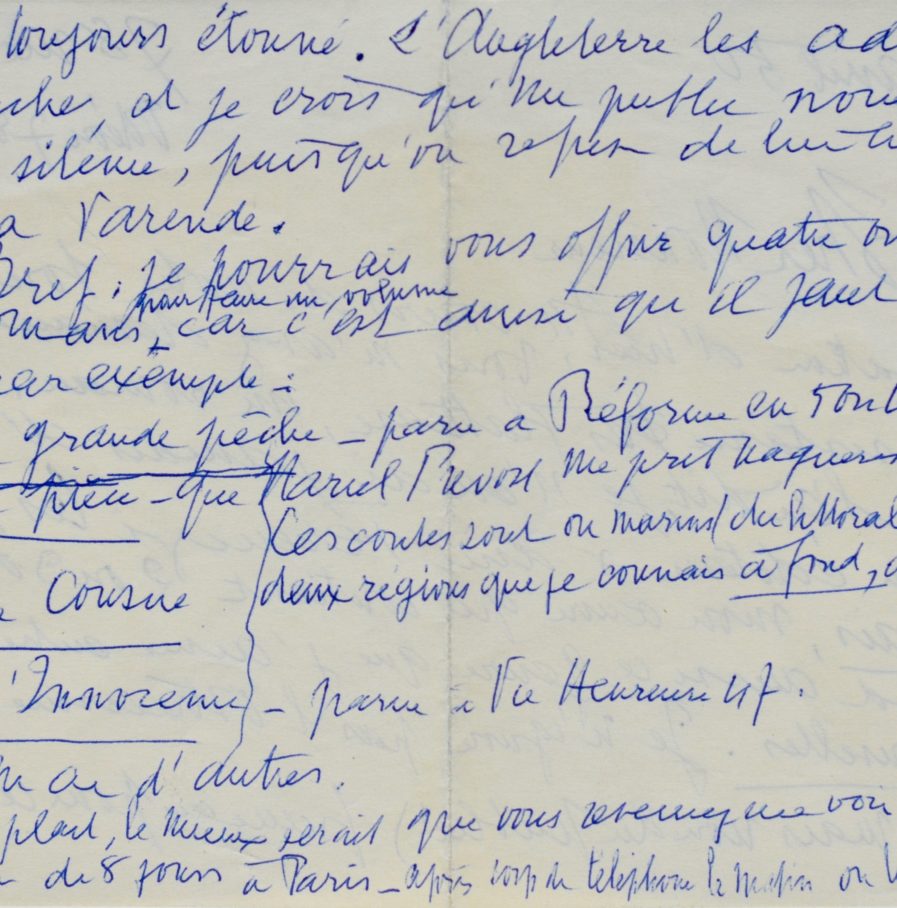 toujours étonné. L'Angleterre les ad
che, et je crois qu'un public nou
silence, puisqu'on de
a Varende.
Bref, je pourrais vous offrir quatre ou
pour faire un volume
omans, car c'est ainsi qu'il faut
ar exemple :
grande pêche - paru à Réforme en
pièce - que Marcel Prévost me prit naguère
(ces contes sont ou marins / du littoral
deux régions que je connais à fond,
Cousine
'Innocence - paru à Vie Heureuse 47.
d'autres.
plaît, le mieux serait que vous veniez me voir
de 8 jours à Paris - après coup de téléphone le matin ou